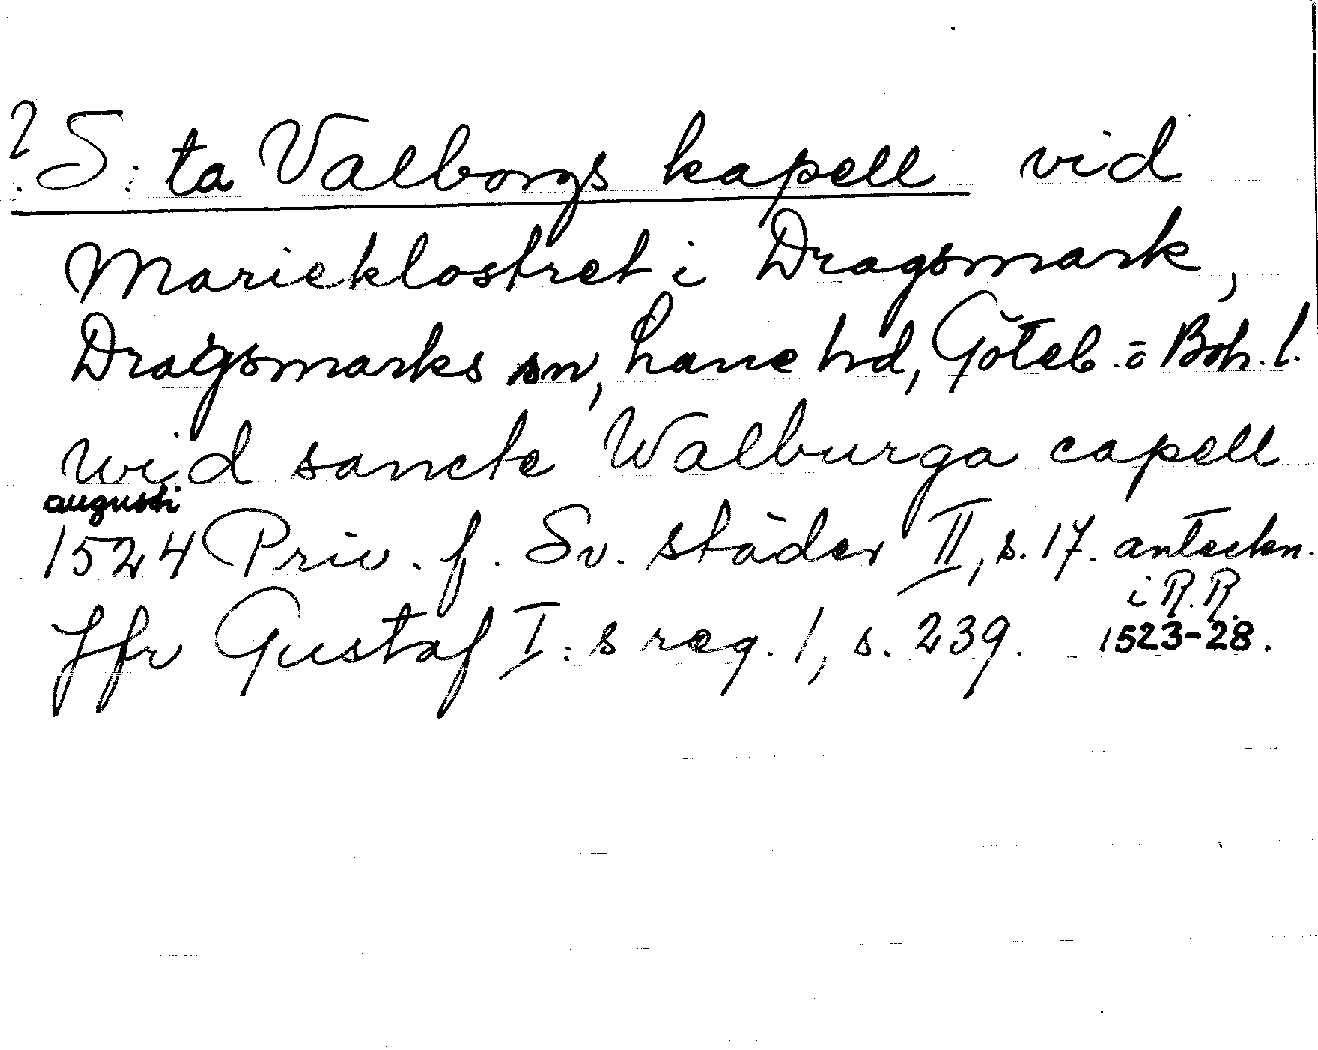 ? S:ta Valborgs kapell vid
Marieklostret i Dragsmark,
Dragsmarks sn, Lane hd, Göteb. o Boh. l.
wid sancte Walburga capell
augusti
1524 Priv. f. Sv. städer II, s. 17. anteckn.
i R.R.
Jfr Gustaf I:s reg. 1, s. 239. 1523-28.